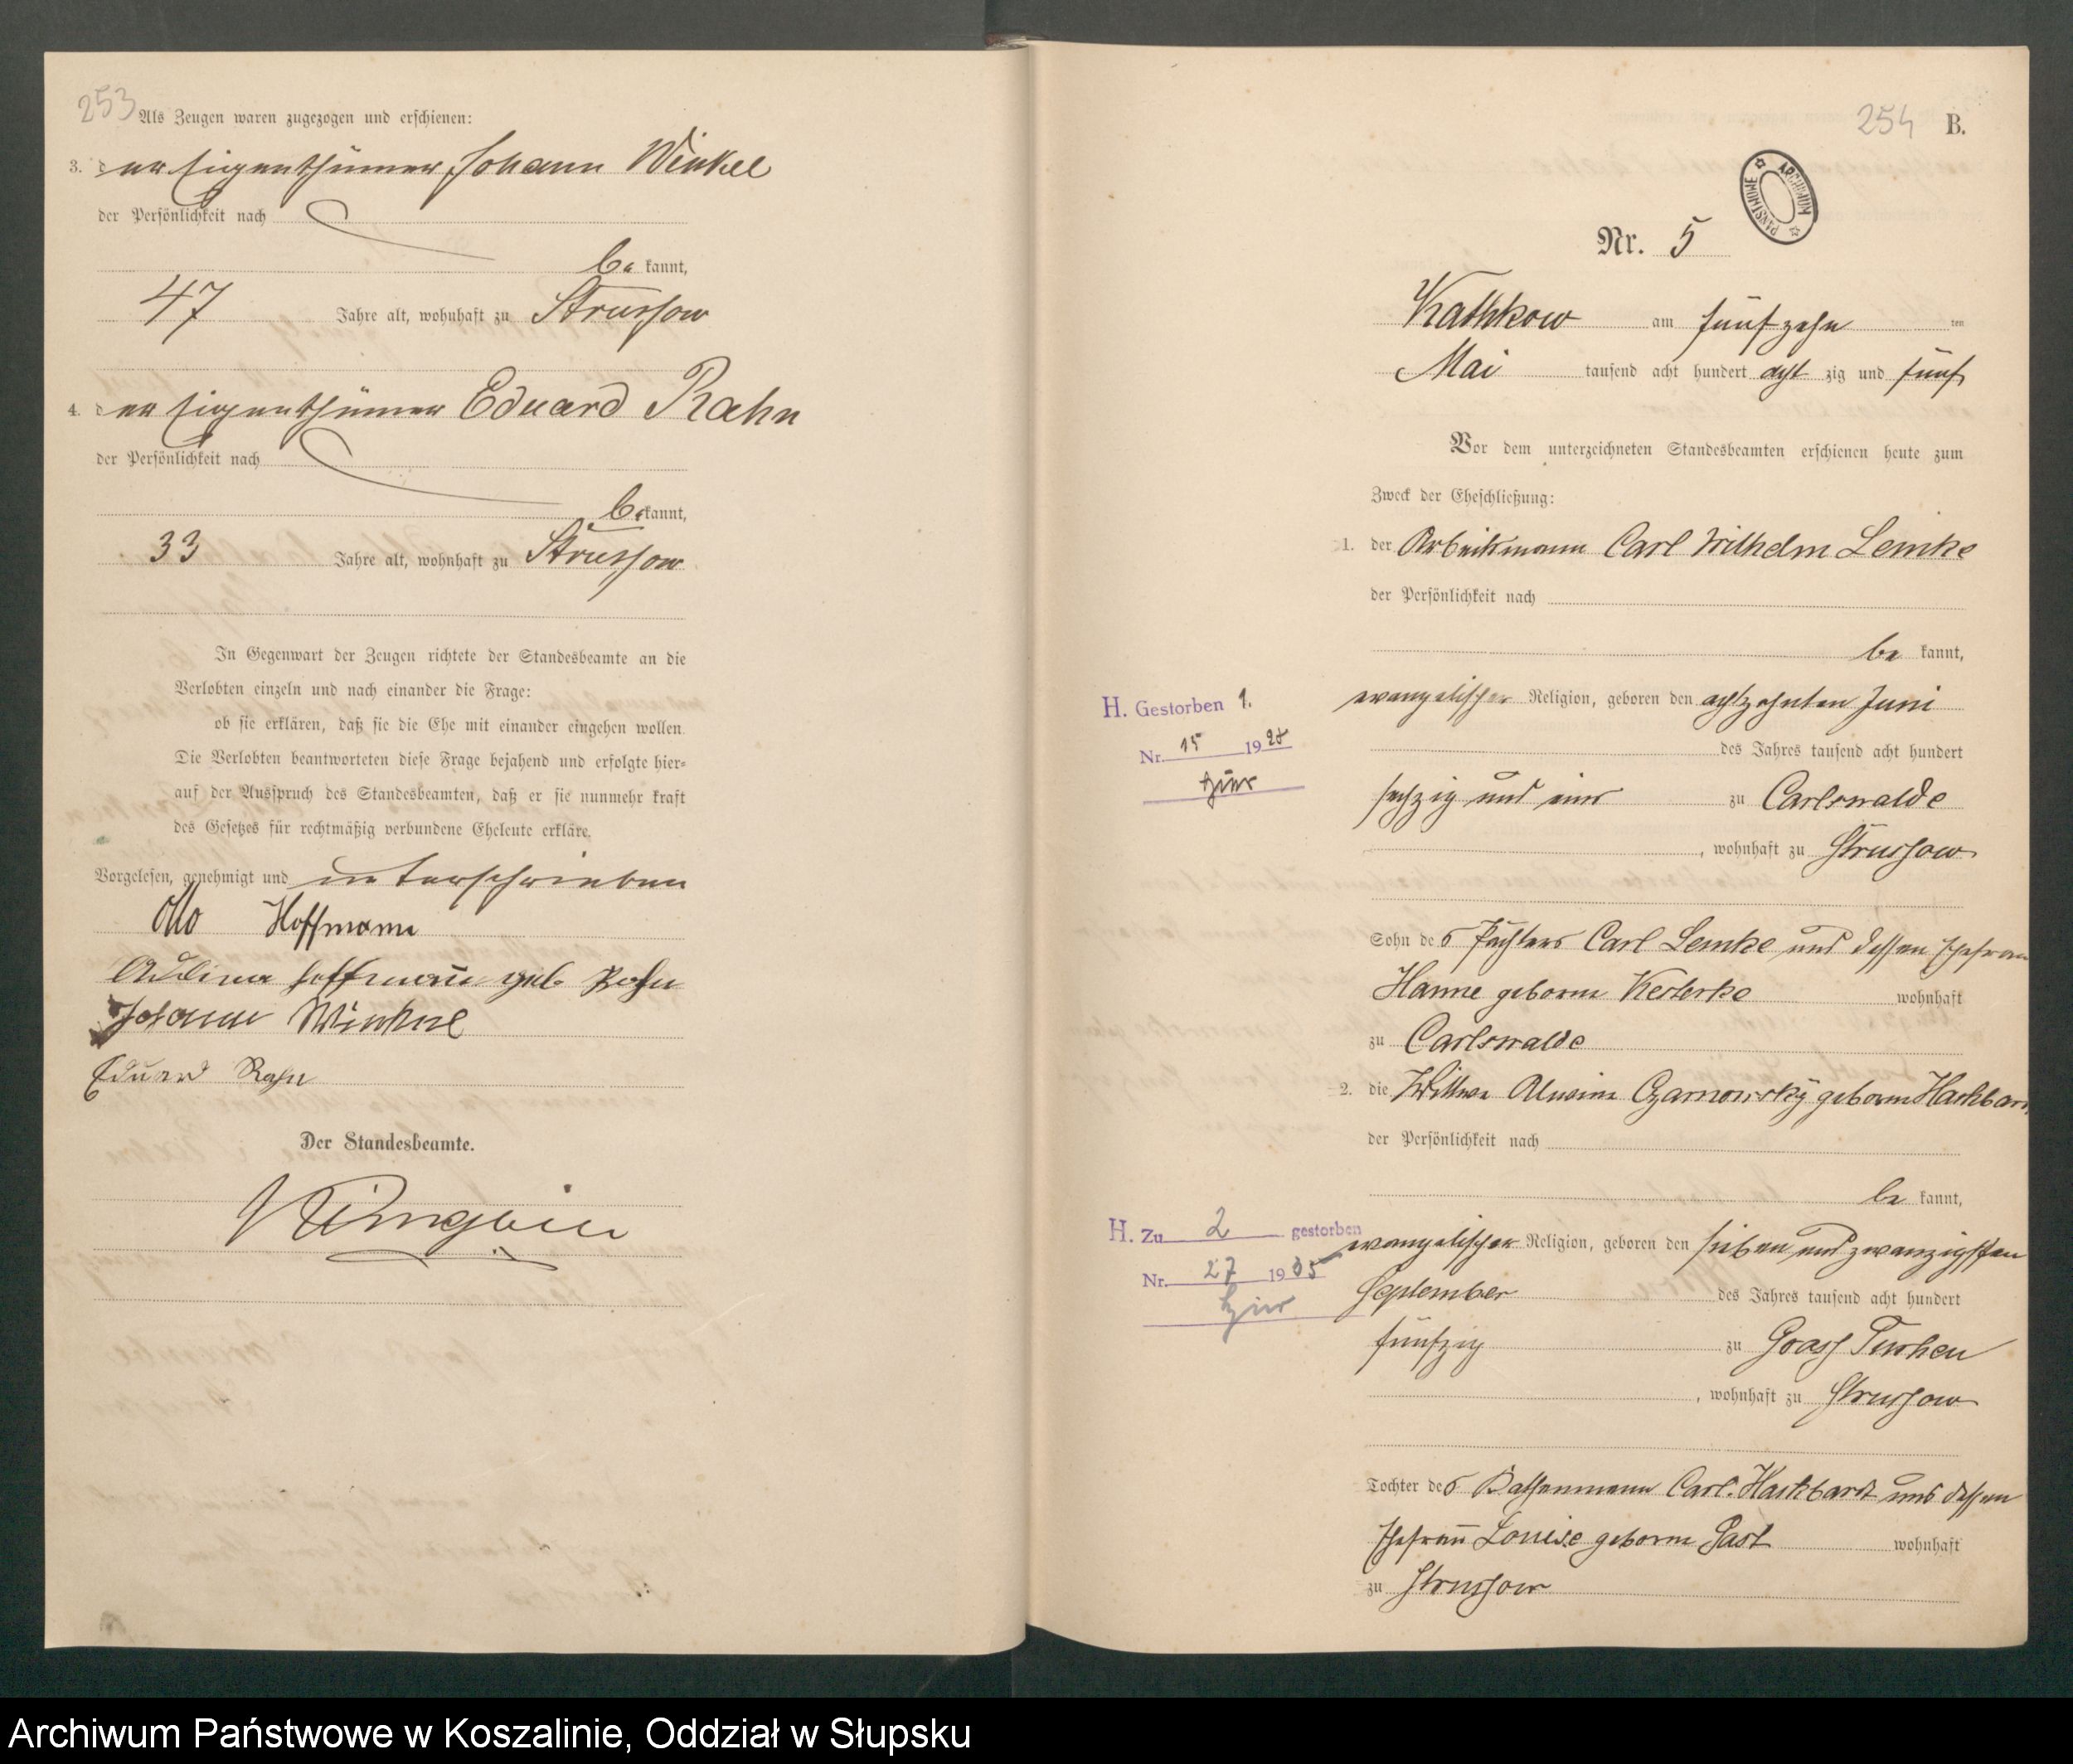 253
Als Zeugen waren zugezogen und erschienen:
3. der Eigenthümer Johann Winkel
der Persönlichkeit nach
be kannt,
47 Jahre alt, wohnhaft zu Strussow
4. der Eigenthümer Eduard Rahn
der Persönlichkeit nach
be kannt,
33 Jahre alt, wohnhaft zu Strussow
In Gegenwart der Zeugen richtete der Standesbeamte an die
Verlobten einzeln und nach einander die Frage:
ob sie erklären, daß sie die Ehe mit einander eingehen wollen.
Die Verlobten beantworteten diese Frage bejahend und erfolgte hier-
auf der Ausspruch des Standesbeamten, daß er sie nunmehr kraft
des Gesetzes für rechtmäßig verbundene Eheleute erkläre.
Vorgelesen, genehmigt und unterschrieben
Otto Hoffmann
Hoffmann geb Rahn
Johann Winkel
Eduard Rahn
Der Standesbeamte.
254 B.
ARCHIWUM PAŃSTWOWE
Nr. 5
Kathkow am fünfzehn ten
Mai tausend acht hundert acht zig und fünf
Vor dem unterzeichneten Standesbeamten erschienen heute zum
Zweck der Eheschließung:
1. der Arbeitsmann Carl Wilhelm Lemke
der Persönlichkeit nach
be kannt,
evangelischer Religion, geboren den achtzehnten Juni
des Jahres tausend acht hundert
sechzig und eins zu Carlswalde
, wohnhaft zu Strussow
Sohn des Pächters Carl Lemke und dessen Ehefrau
Hanne geborne Kesterke wohnhaft
zu Carlswalde
2. die Wittwe Alwine Czarnowsky geborne
der Persönlichkeit nach
be kannt,
evangelischer Religion, geboren den sieben und zwanzigsten
September des Jahres tausend acht hundert
fünfzig zu Gross Tuchen
, wohnhaft zu Strussow
Tochter des Carl Hackbardt und dessen
Ehefrau Louise geborne Gast wohnhaft
zu Strussow
H. Gestorben 1.
Nr. 15 1928
hier
H. Zu 2 gestorben
Nr. 27 1935
hier
Archiwum Państwowe w Koszalinie, Oddział w Słupsku